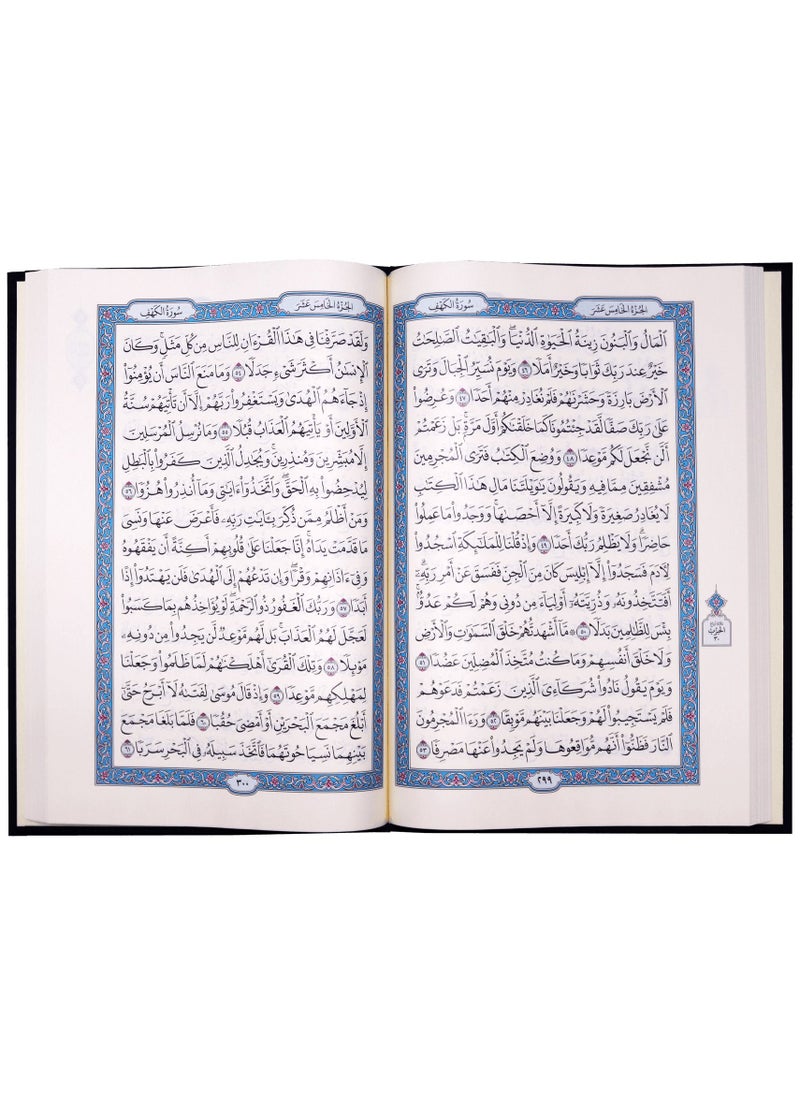 الجُزْءُ الخَامِسَ عَشَرَ
سُورَةُ الكَهْفِ
ٱلْمَالُ وَٱلْبَنُونَ زِينَةُ ٱلْحَيَوٰةِ ٱلدُّنْيَا ۖ وَٱلْبَٰقِيَٰتُ ٱلصَّٰلِحَٰتُ
خَيْرٌ عِندَ رَبِّكَ ثَوَابًا وَخَيْرٌ أَمَلًا ٤٦ وَيَوْمَ نُسَيِّرُ ٱلْجِبَالَ وَتَرَى
ٱلْأَرْضَ بَارِزَةً وَحَشَرْنَٰهُمْ فَلَمْ نُغَادِرْ مِنْهُمْ أَحَدًا ٤٧ وَعُرِضُوا۟
عَلَىٰ رَبِّكَ صَفًّا لَّقَدْ جِئْتُمُونَا كَمَا خَلَقْنَٰكُمْ أَوَّلَ مَرَّةٍۭ ۚ بَلْ زَعَمْتُمْ
أَلَّن نَّجْعَلَ لَكُم مَّوْعِدًا ٤٨ وَوُضِعَ ٱلْكِتَٰبُ فَتَرَى ٱلْمُجْرِمِينَ
مُشْفِقِينَ مِمَّا فِيهِ وَيَقُولُونَ يَٰوَيْلَتَنَا مَالِ هَٰذَا ٱلْكِتَٰبِ
لَا يُغَادِرُ صَغِيرَةً وَلَا كَبِيرَةً إِلَّآ أَحْصَىٰهَا ۚ وَوَجَدُوا۟ مَا عَمِلُوا۟
حَاضِرًا ۗ وَلَا يَظْلِمُ رَبُّكَ أَحَدًا ٤٩ وَإِذْ قُلْنَا لِلْمَلَٰٓئِكَةِ ٱسْجُدُوا۟
لِـَٔادَمَ فَسَجَدُوٓا۟ إِلَّآ إِبْلِيسَ كَانَ مِنَ ٱلْجِنِّ فَفَسَقَ عَنْ أَمْرِ رَبِّهِۦٓ ۗ
أَفَتَتَّخِذُونَهُۥ وَذُرِّيَّتَهُۥٓ أَوْلِيَآءَ مِن دُونِى وَهُمْ لَكُمْ عَدُوٌّۢ ۚ
بِئْسَ لِلظَّٰلِمِينَ بَدَلًا ٥٠ مَّآ أَشْهَدتُّهُمْ خَلْقَ ٱلسَّمَٰوَٰتِ وَٱلْأَرْضِ
وَلَا خَلْقَ أَنفُسِهِمْ وَمَا كُنتُ مُتَّخِذَ ٱلْمُضِلِّينَ عَضُدًا ٥١
وَيَوْمَ يَقُولُ نَادُوا۟ شُرَكَآءِىَ ٱلَّذِينَ زَعَمْتُمْ فَدَعَوْهُمْ
فَلَمْ يَسْتَجِيبُوا۟ لَهُمْ وَجَعَلْنَا بَيْنَهُم مَّوْبِقًا ٥٢ وَرَءَا ٱلْمُجْرِمُونَ
ٱلنَّارَ فَظَنُّوٓا۟ أَنَّهُم مُّوَاقِعُوهَا وَلَمْ يَجِدُوا۟ عَنْهَا مَصْرِفًا ٥٣
٢٩٩
الحِزْبُ
٣٠
الجُزْءُ الخَامِسَ عَشَرَ
سُورَةُ الكَهْفِ
وَلَقَدْ صَرَّفْنَا فِى هَٰذَا ٱلْقُرْءَانِ لِلنَّاسِ مِن كُلِّ مَثَلٍ ۚ وَكَانَ
ٱلْإِنسَٰنُ أَكْثَرَ شَىْءٍ جَدَلًا ٥٤ وَمَا مَنَعَ ٱلنَّاسَ أَن يُؤْمِنُوٓا۟
إِذْ جَآءَهُمُ ٱلْهُدَىٰ وَيَسْتَغْفِرُوا۟ رَبَّهُمْ إِلَّآ أَن تَأْتِيَهُمْ سُنَّةُ
ٱلْأَوَّلِينَ أَوْ يَأْتِيَهُمُ ٱلْعَذَابُ قُبُلًا ٥٥ وَمَا نُرْسِلُ ٱلْمُرْسَلِينَ
إِلَّا مُبَشِّرِينَ وَمُنذِرِينَ ۚ وَيُجَٰدِلُ ٱلَّذِينَ كَفَرُوا۟ بِٱلْبَٰطِلِ
لِيُدْحِضُوا۟ بِهِ ٱلْحَقَّ ۖ وَٱتَّخَذُوٓا۟ ءَايَٰتِى وَمَآ أُنذِرُوا۟ هُزُوًا ٥٦
وَمَنْ أَظْلَمُ مِمَّن ذُكِّرَ بِـَٔايَٰتِ رَبِّهِۦ فَأَعْرَضَ عَنْهَا وَنَسِىَ
مَا قَدَّمَتْ يَدَاهُ ۚ إِنَّا جَعَلْنَا عَلَىٰ قُلُوبِهِمْ أَكِنَّةً أَن يَفْقَهُوهُ
وَفِىٓ ءَاذَانِهِمْ وَقْرًا ۖ وَإِن تَدْعُهُمْ إِلَى ٱلْهُدَىٰ فَلَن يَهْتَدُوٓا۟ إِذًا
أَبَدًا ٥٧ وَرَبُّكَ ٱلْغَفُورُ ذُو ٱلرَّحْمَةِ ۖ لَوْ يُؤَاخِذُهُم بِمَا كَسَبُوا۟
لَعَجَّلَ لَهُمُ ٱلْعَذَابَ ۚ بَل لَّهُم مَّوْعِدٌ لَّن يَجِدُوا۟ مِن دُونِهِۦ
مَوْئِلًا ٥٨ وَتِلْكَ ٱلْقُرَىٰٓ أَهْلَكْنَٰهُمْ لَمَّا ظَلَمُوا۟ وَجَعَلْنَا
لِمَهْلِكِهِم مَّوْعِدًا ٥٩ وَإِذْ قَالَ مُوسَىٰ لِفَتَىٰهُ لَآ أَبْرَحُ حَتَّىٰٓ
أَبْلُغَ مَجْمَعَ ٱلْبَحْرَيْنِ أَوْ أَمْضِىَ حُقُبًا ٦٠ فَلَمَّا بَلَغَا مَجْمَعَ
بَيْنِهِمَا نَسِيَا حُوتَهُمَا فَٱتَّخَذَ سَبِيلَهُۥ فِى ٱلْبَحْرِ سَرَبًا ٦١
٣٠٠